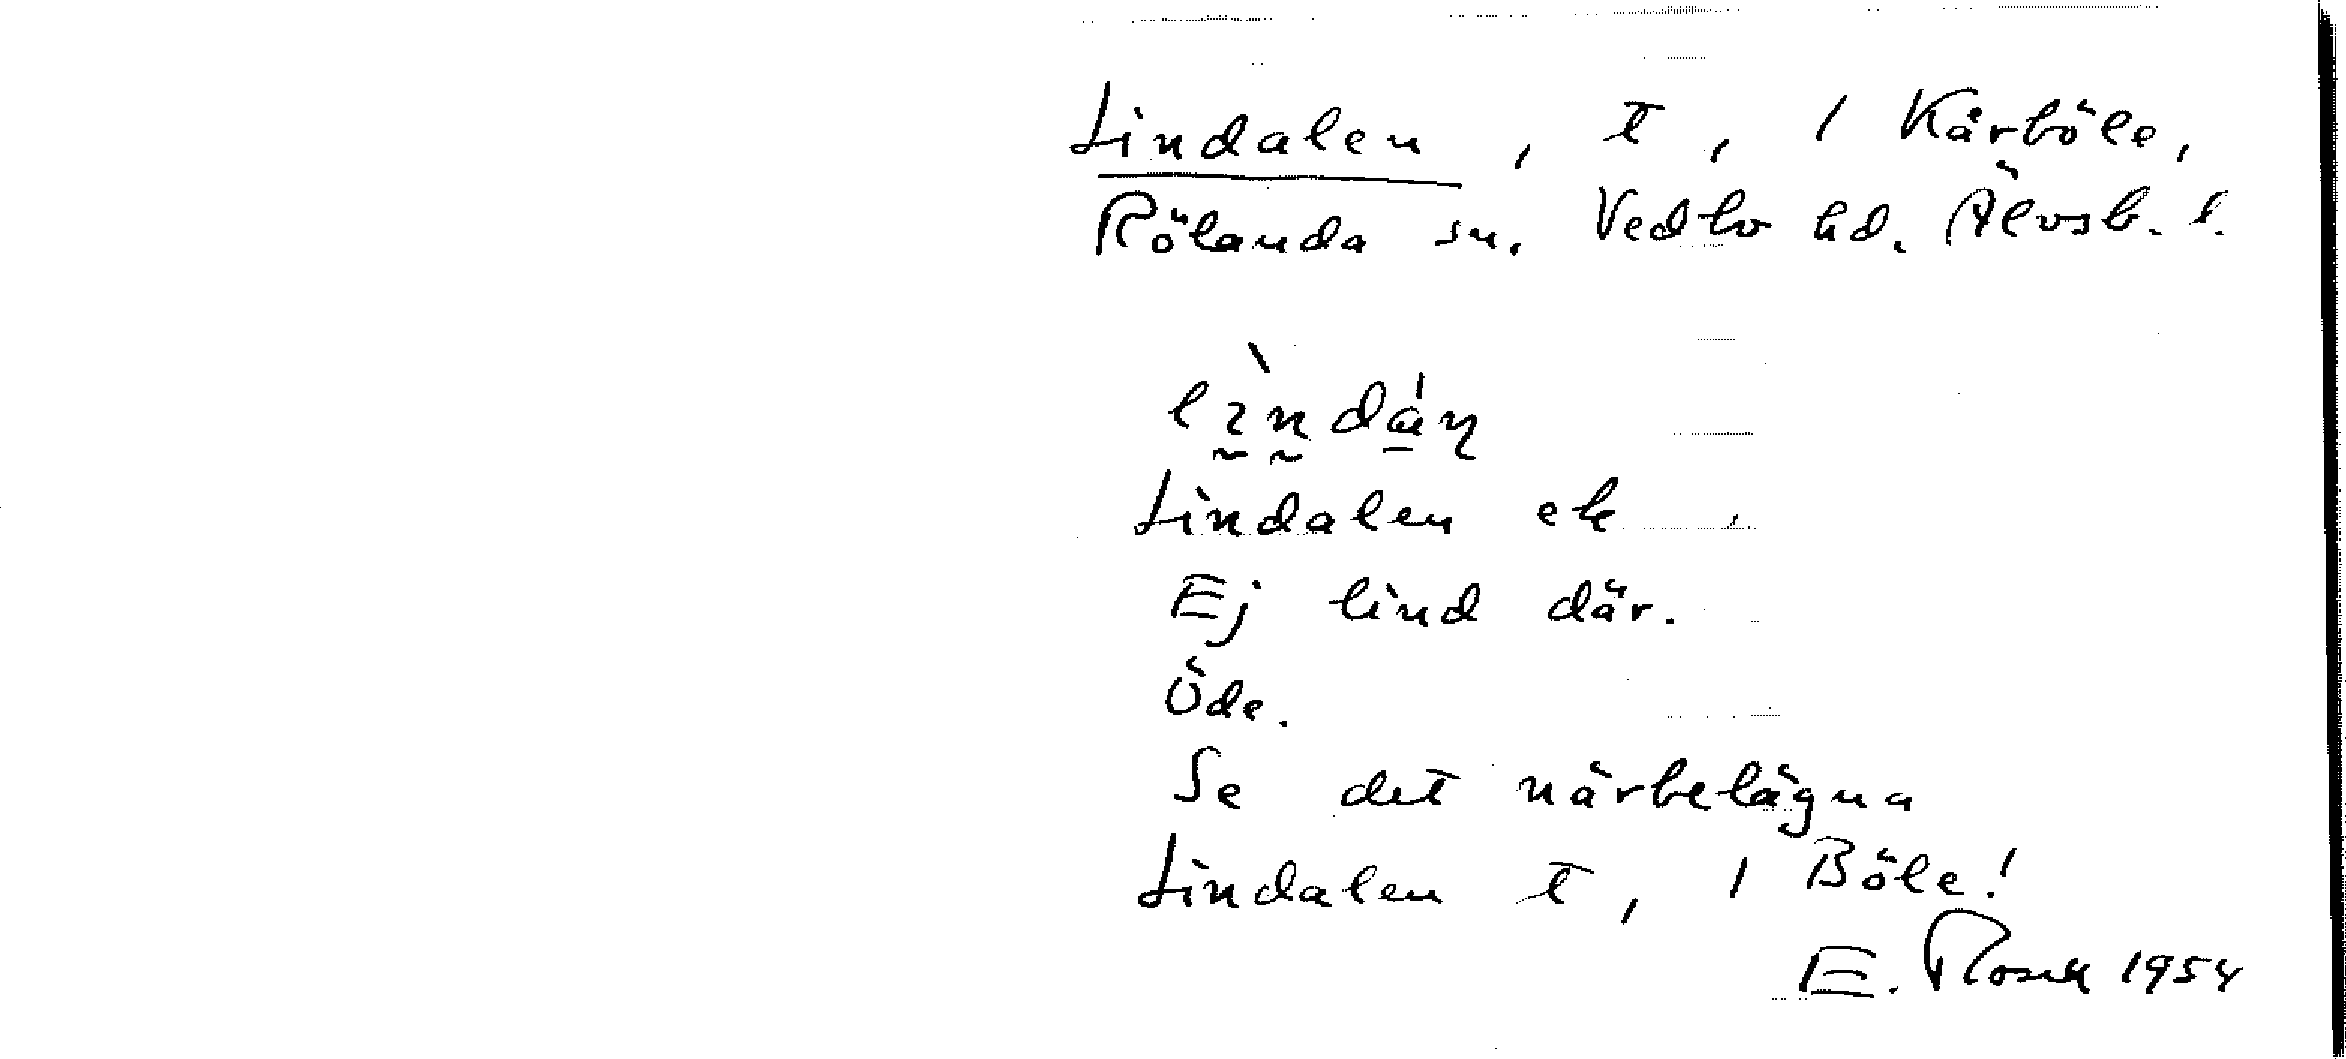 Lindalen, t, / Kärböle,
Rölanda sn. Vedbo hd. Älvsb. l.
Lindalen ek
Ej lind där.
Öde.
Se det närbelägna
Lindalen t, / Böle!
E. Rosell 1954